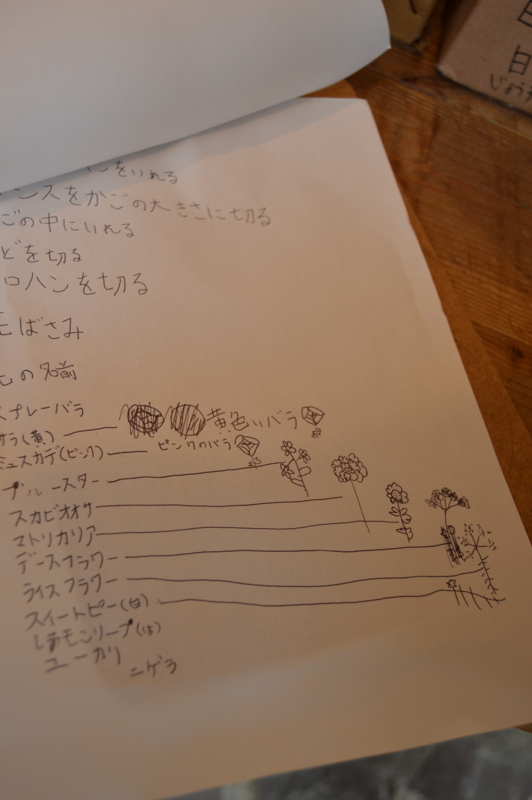 日
日
じょうろ
をいれる
ンスをかごの大きさに切る
ごの中にいれる
どを切る
ロハンを切る
ばさみ
の名前
スプレーバラ
オラ(黄) 黄色いバラ
ミュスカデ(ピンク) ピンクのバラ
ブルースター
スカビオオサ
マトリカリア
デースフラワー
ライスフラワー
スイートピー(白)
レモンリーブ(は)
ユーカリ
ニゲラ